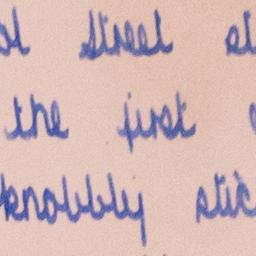 street
the first
knobbly